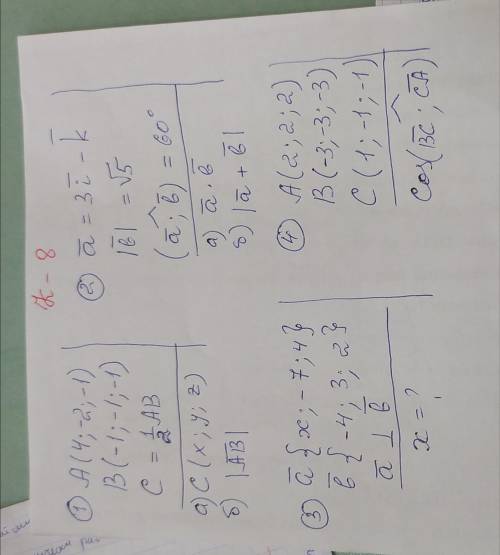 К - 8
① A(4; -2; -1)
B(-1; -1; -1)
C = 1/2 AB
а) C(x; y; z)
б) |A̅B̅|
② a̅ = 3i̅ - k̅
|b̅| = √5
(a̅ ^ ; b̅) = 60°
а) a̅ · b̅
б) |a̅ + b̅|
③ a̅ {x; -7; 4}
b̅ {-4; 3; 2}
a̅ ⊥ b̅
x = ?
④ A(2; 2; 2)
B(-3; -3; -3)
C(1; -1; -1)
cos(B̅C̅ ^ ; C̅A̅)